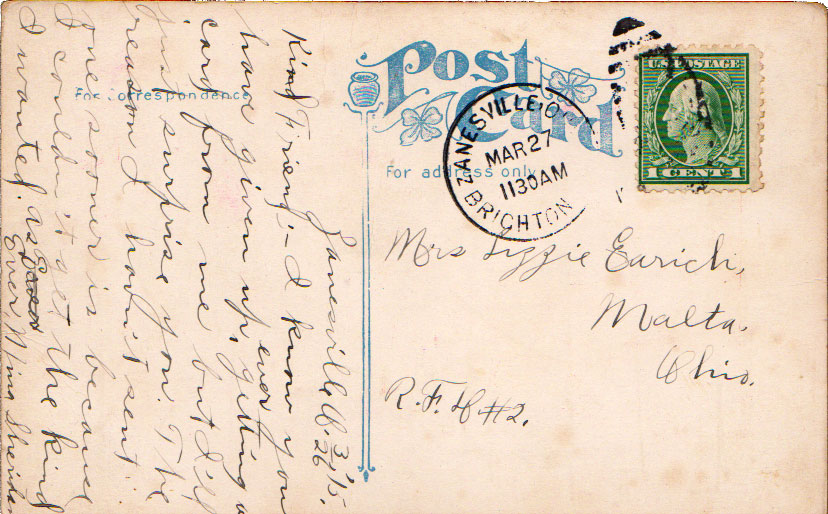 Post
Card
For correspondence
For address only
U.S. POSTAGE
1 CENTS 1
ZANESVILLE, O
MAR 27
1130AM
BRIGHTON
Mrs Lizzie Earich,
Malta.
Ohio.
R.F.D #2.
Zanesville O. 3/26 '15.
Kind Friend:- I know you
have given up, ever getting a
card from me but I'll
just surprise you. The
reason I havn't sent
one sooner is because
I couldn't get the kind
I wanted. As
Ever, Mina Sheridan